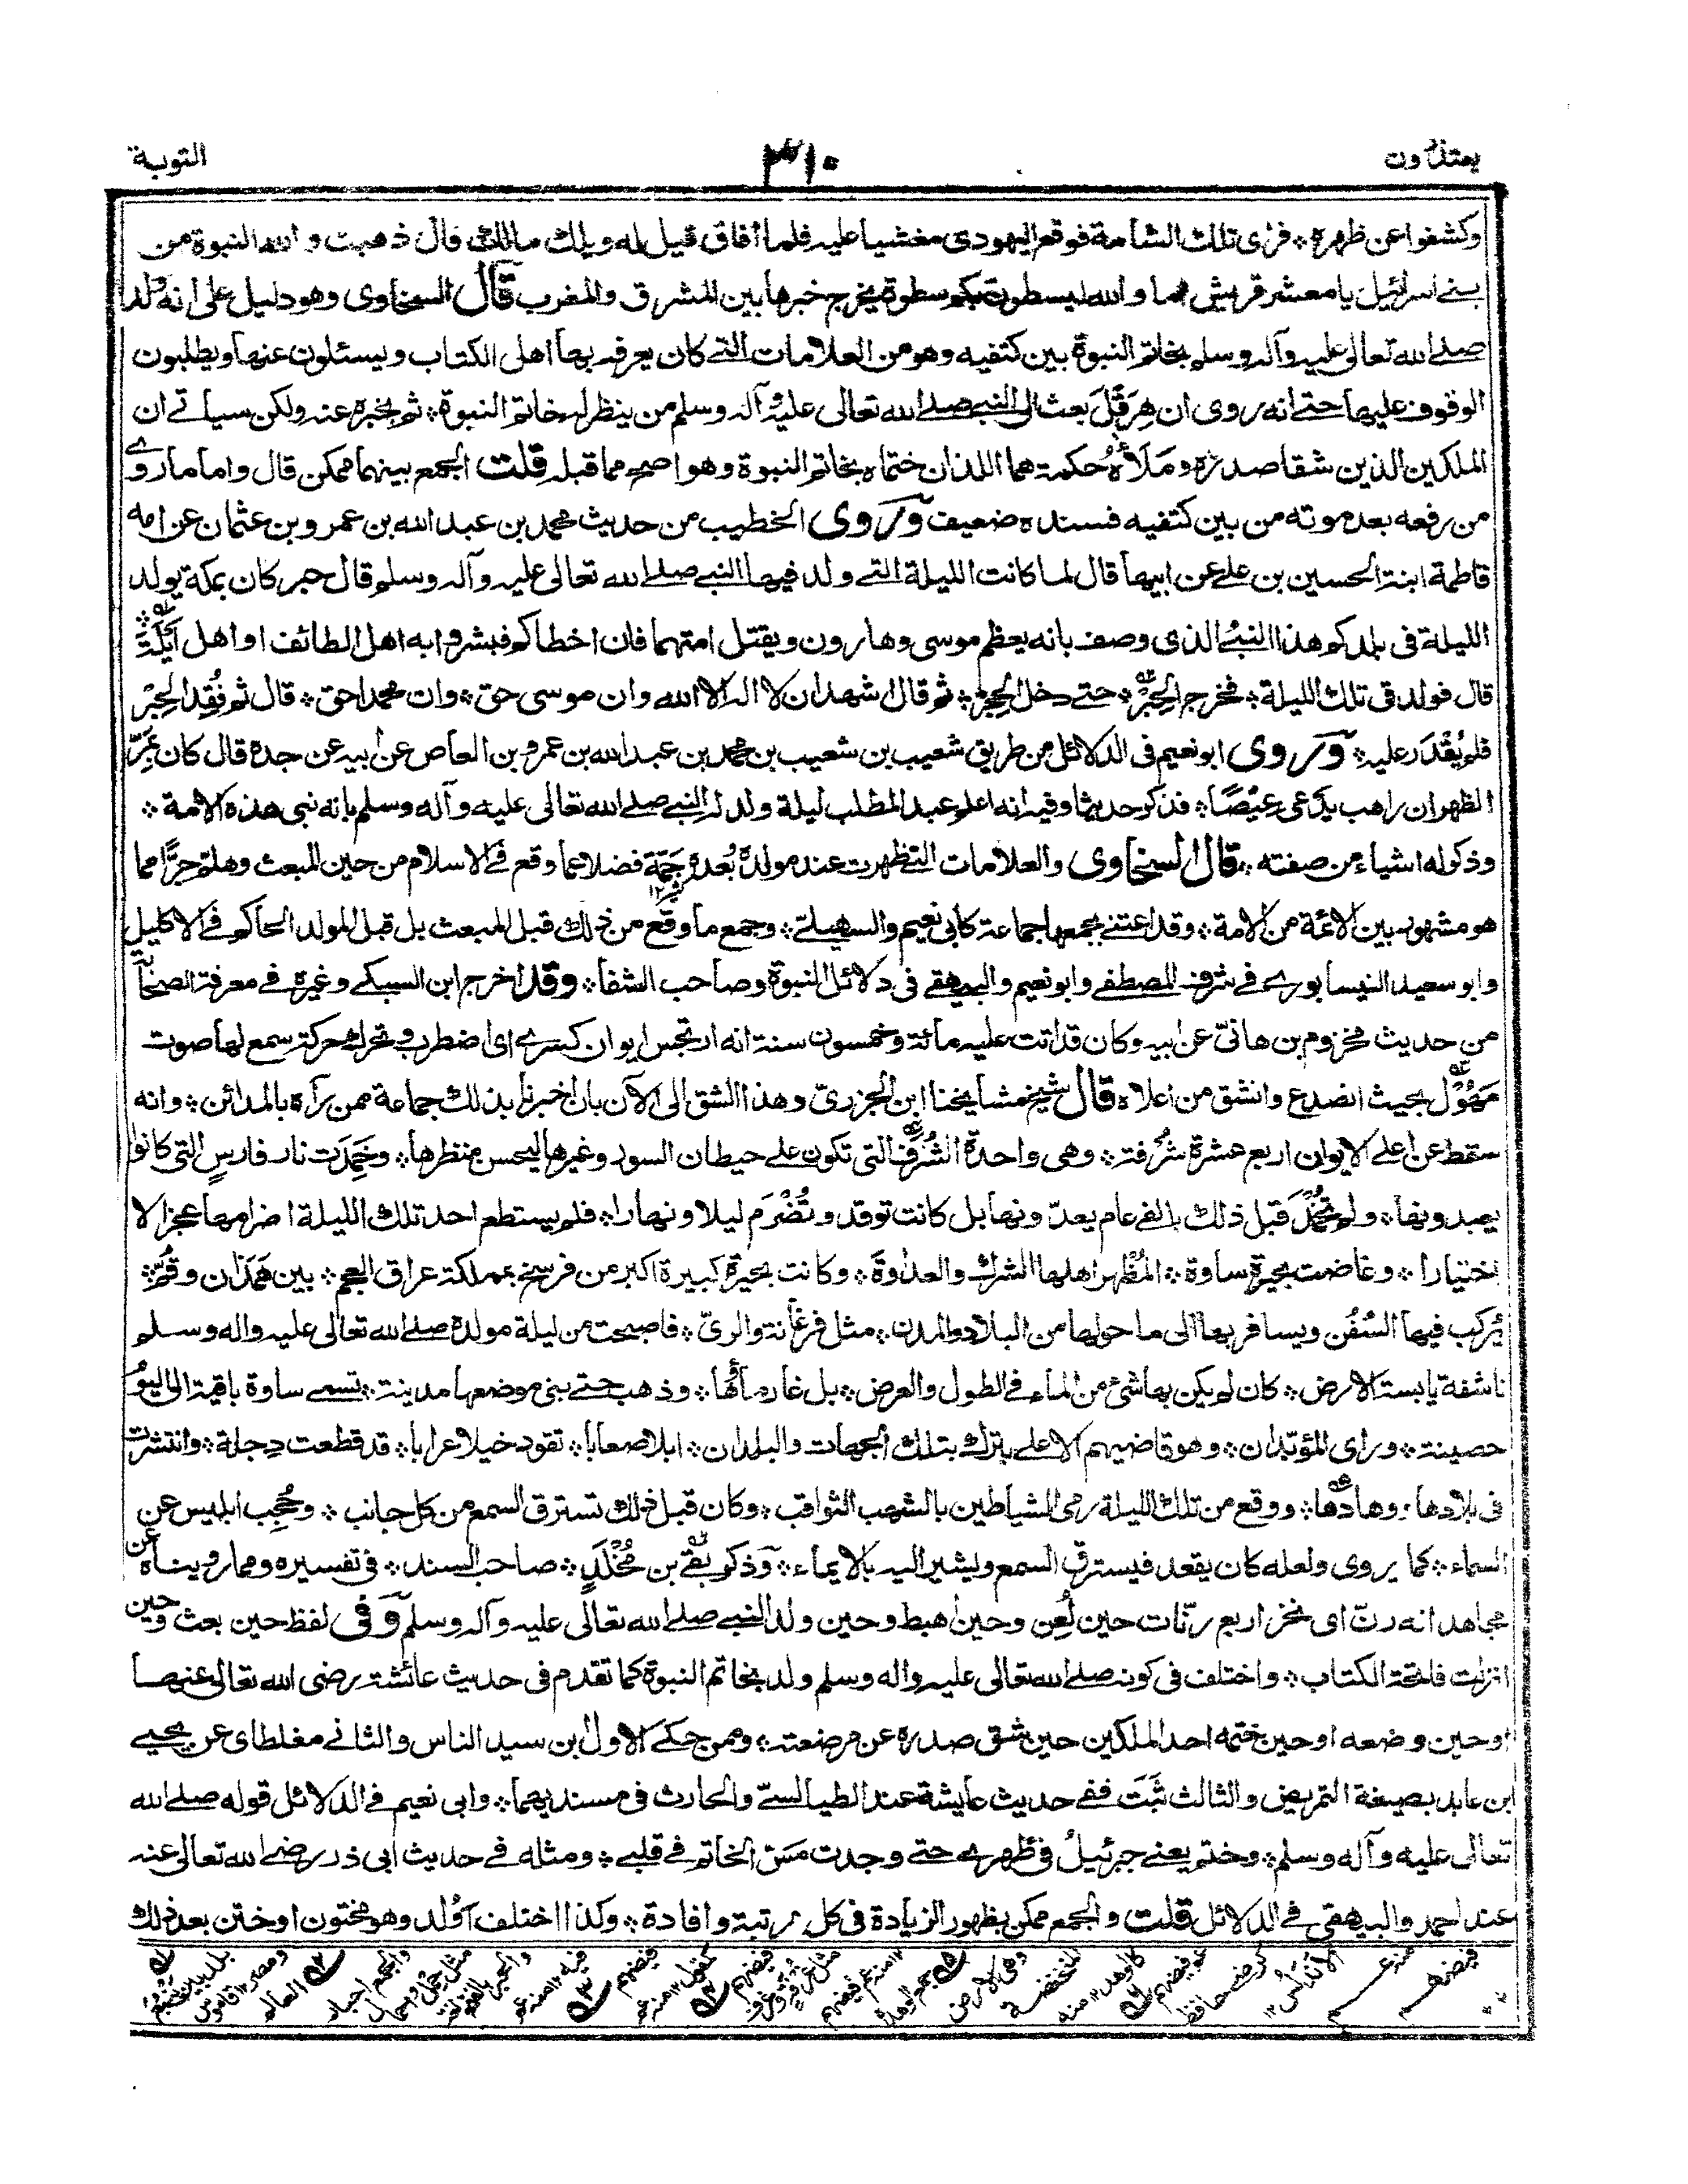 يعتذرون ٣١٠ التوبة
وكشفوا عن ظهره ؞ فرأى تلك الشامة فوقع اليهودى مغشيا عليه فلما أفاق قيل له ويلك مالك قال ذهبت والله النبوة من
بنى اسرائيل يا معشر قريش اما والله ليسطون بكم سطوة يخرج خبرها بين المشرق والمغرب قال السخاوى وهو دليل على انه ولد
صلے الله تعالى عليه وآله وسلم بخاتم النبوة بين كتفيه وهو من العلامات التے كان يعرفه بها أهل الكتاب ويسئلون عنها ويطلبون
الوقوف عليها حتے انه روى ان هِرَقْلَ بعث الى النبے صلے الله تعالى عليه وآله وسلم من ينظر له خاتم النبوة ؞ ثم يخبره عنه ولكن سياتے ان
الملكين الذين شقا صدره ومَلَأَهُ حكمة هما اللذان ختماه بخاتم النبوة وهو اصح مما قبله قلت الجمع بينهما ممكن قال واما ما روے
من رفعه بعد موته من بين كتفيه فسنده ضعيف وَروى الخطيب من حديث محمد بن عبد الله بن عمرو بن عثمان عن امه
فاطمة ابنة الحسين بن علے عن ابيها قال لما كانت الليلة التے ولد فيها النبے صلے الله تعالى عليه وآله وسلم قال حبر كان بمكة يولد
الليلة فى بلدكم هذا النبىُّ الذى وصف بانه يعظم موسى وهارون ويقتل امتهما فان اخطأكم فبشروا به اهل الطائف او اهل اَيْلَةَ ؞
قال فولد فى تلك الليلة ؞ فخرج الحِبْر ؞ حتے دخل الحِجْرَ ؞ ثم قال اشهد ان لا اله الا الله وان موسى حق ؞ وان محمدا حق ؞ قال ثم فُقِد الحِبْر
فلم يُقْدَر عليه ؞ وَروى ابو نعيم فى الدلائل من طريق شعيب بن شعيب بن محمد بن عبد الله بن عمرو بن العاص عن أبيه عن جده قال كان بمَرِّ
الظهران راهب يدّعى عيْصًا ؞ فذكر حديثا وفيه انه اعلم عبد المطلب ليلة ولد له النبے صلے الله تعالى عليه وآله وسلم بانه نبى هذه الامة ؞
وذكر له اشياء من صفته ؞ قال السخاوى والعلامات التے ظهرت عند مولده بُعدهُ جَمّة فضلا عما وقع فے الاسلام من حين المبعث وهلمّ جرًّا مما
هو مشهور بين الائمة من الامة ؞ وقد اعتنے بجمعها جماعة كابى نعيم والسهيلے ؞ وجمع ما وقع من ذلك قبل المبعث بل قبل المولد الحاكم فے الاكليل
وابو سعيد النيسابورے فے شرف المصطفے وابو نعيم والبيهقے فى دلائل النبوة وصاحب الشفا ؞ وقد اخرج ابن السبكے وغيره فے معرفة الصحابة
من حديث مخزوم بن هانئ عن ابيه وكان قد اتت عليه مائة وخمسون سنة انه ارتجس ايوان كسرے اى اضطرب وتحرك حركة سمع لها صوت
مَهُوْل بحيث انصدع وانشق من اعلاه قال شيخ مشايخنا ابن الجزرىّ وهذا الشق الى الآن بان اخبرنا بذلك جماعة ممن رآه بالمدائن ؞ وانه
سقط عن اعلے الايوان اربع عشرة شُرْفة ؞ وهى واحدة الشُرَف التى تكون علے حيطان السور وغيرها ليحسن منظرها ؞ وخَمِدَت نار فارس التى كانوا
يعبدونها ؞ ولم تَخْمُد قبل ذلك بالفے عام يعدّونها بل كانت توقد وتُضْرَم ليلا ونهارا ؞ فلم يستطع احد تلك الليلة اضرامها عجزا لا
اختيارا ؞ وغاضت بحيرة ساوة ؞ المُظْهِر اهلها الشرك والعداوة ؞ وكانت بحيرة كبيرة اكبر من فرسخ بمملكة عراق العجم ؞ بين هَمَذان وقُمّ ؞
يُركب فيها السُفُن ويسافر بها الى ما حولها من البلاد والمدن ؞ مثل فرغانة والرىّ ؞ فاصبحت من ليلة مولده صلے الله تعالى عليه واله وسلم
ناشفة يابسة الارض ؞ كان لم يكن بها شئ من الماء فے الطول والعرض ؞ بل غار ماؤها ؞ وذهب حتے بنى موضعها مدينة ؞ تسمے ساوة باقية الى اليوم
حصينة ؞ وراى المؤبّدان ؞ وهو قاضيهم الاعلے بتلك الجهات والبلدان ؞ ابلا صعابا ؞ تقود خيلا عرابا ؞ قد قطعت دجلة ؞ وانتشرت
فى بلادها ؞ وهادها ؞ ووقع من تلك الليلة رمى الشياطين بالشهب الثواقب ؞ وكان قبل ذلك تسترق السمع من كل جانب ؞ وحُجِب ابليس عن
السماء ؞ كما يروى ولعله كان يقعد فيسترق السمع ويشير اليه بالايماء ؞ وَذكر بَقے بن مُخْلَدٍ ؞ صاحب السند ؞ فى تفسيره ومما رويناه عن
مجاهد انه رنّ اى نخر اربع رنّات حين لُعِن وحين اهبط وحين ولد النبے صلے الله تعالى عليه وآله وسلم وَفى لفظ حين بعث وحين
انزلت فاتحة الكتاب ؞ واختلف فى كونه صلے الله تعالى عليه واله وسلم ولد بخاتم النبوة كما تقدم فى حديث عائشة رضى الله تعالى عنها
او حين وضعه او حين ختمه احد الملكين حين شق صدره عن مرضعته ؞ وممن حكے الاول بن سيد الناس والثانے مغلطاى عن يحيے
ابن عابد بصيغة التمريض والثالث ثَبَت ففے حديث عايشة عند الطيالسىّ والحارث فى مسنديهما ؞ وابى نعيم فے الدلائل قوله صلے الله
تعالى عليه وآله وسلم ؞ وختم يعنے جبرئيلُ فى ظهرے حتے وجدت مَسّ الخاتم فے قلبے ؞ ومثله فے حديث ابى ذر رضے الله تعالى عنه
عند احمد والبيهقى فے الدلائل قلت والجمع ممكن بظهور الزيادة فى كل مرتبة وافادة ؞ وكذا اختلف أوُلد وهو مختون او ختن بعد ذلك